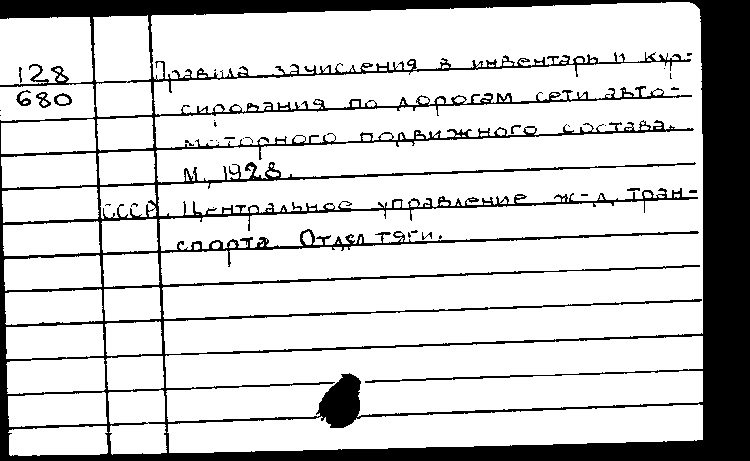 128 Правила зачисления в инвентарь и кур-
680 сирования по дорогам сети авто-
моторного подвижного состава.
М., 1928.
СССР. Центральное управление ж-д. тран-
спорта. Отдел тяги.